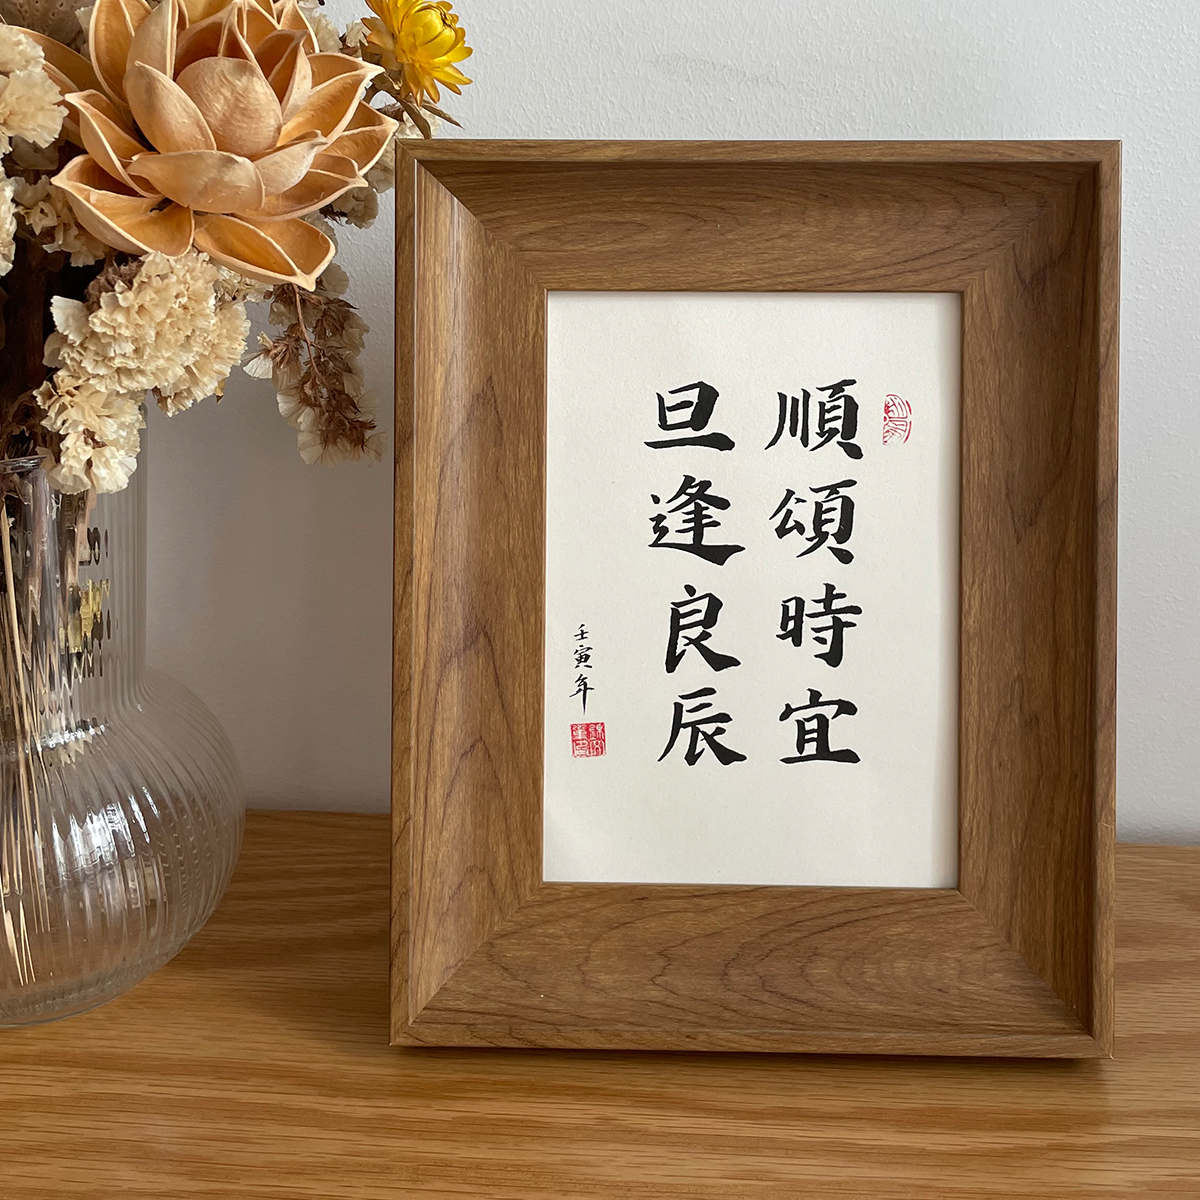 順頌時宜
旦逢良辰
壬寅年